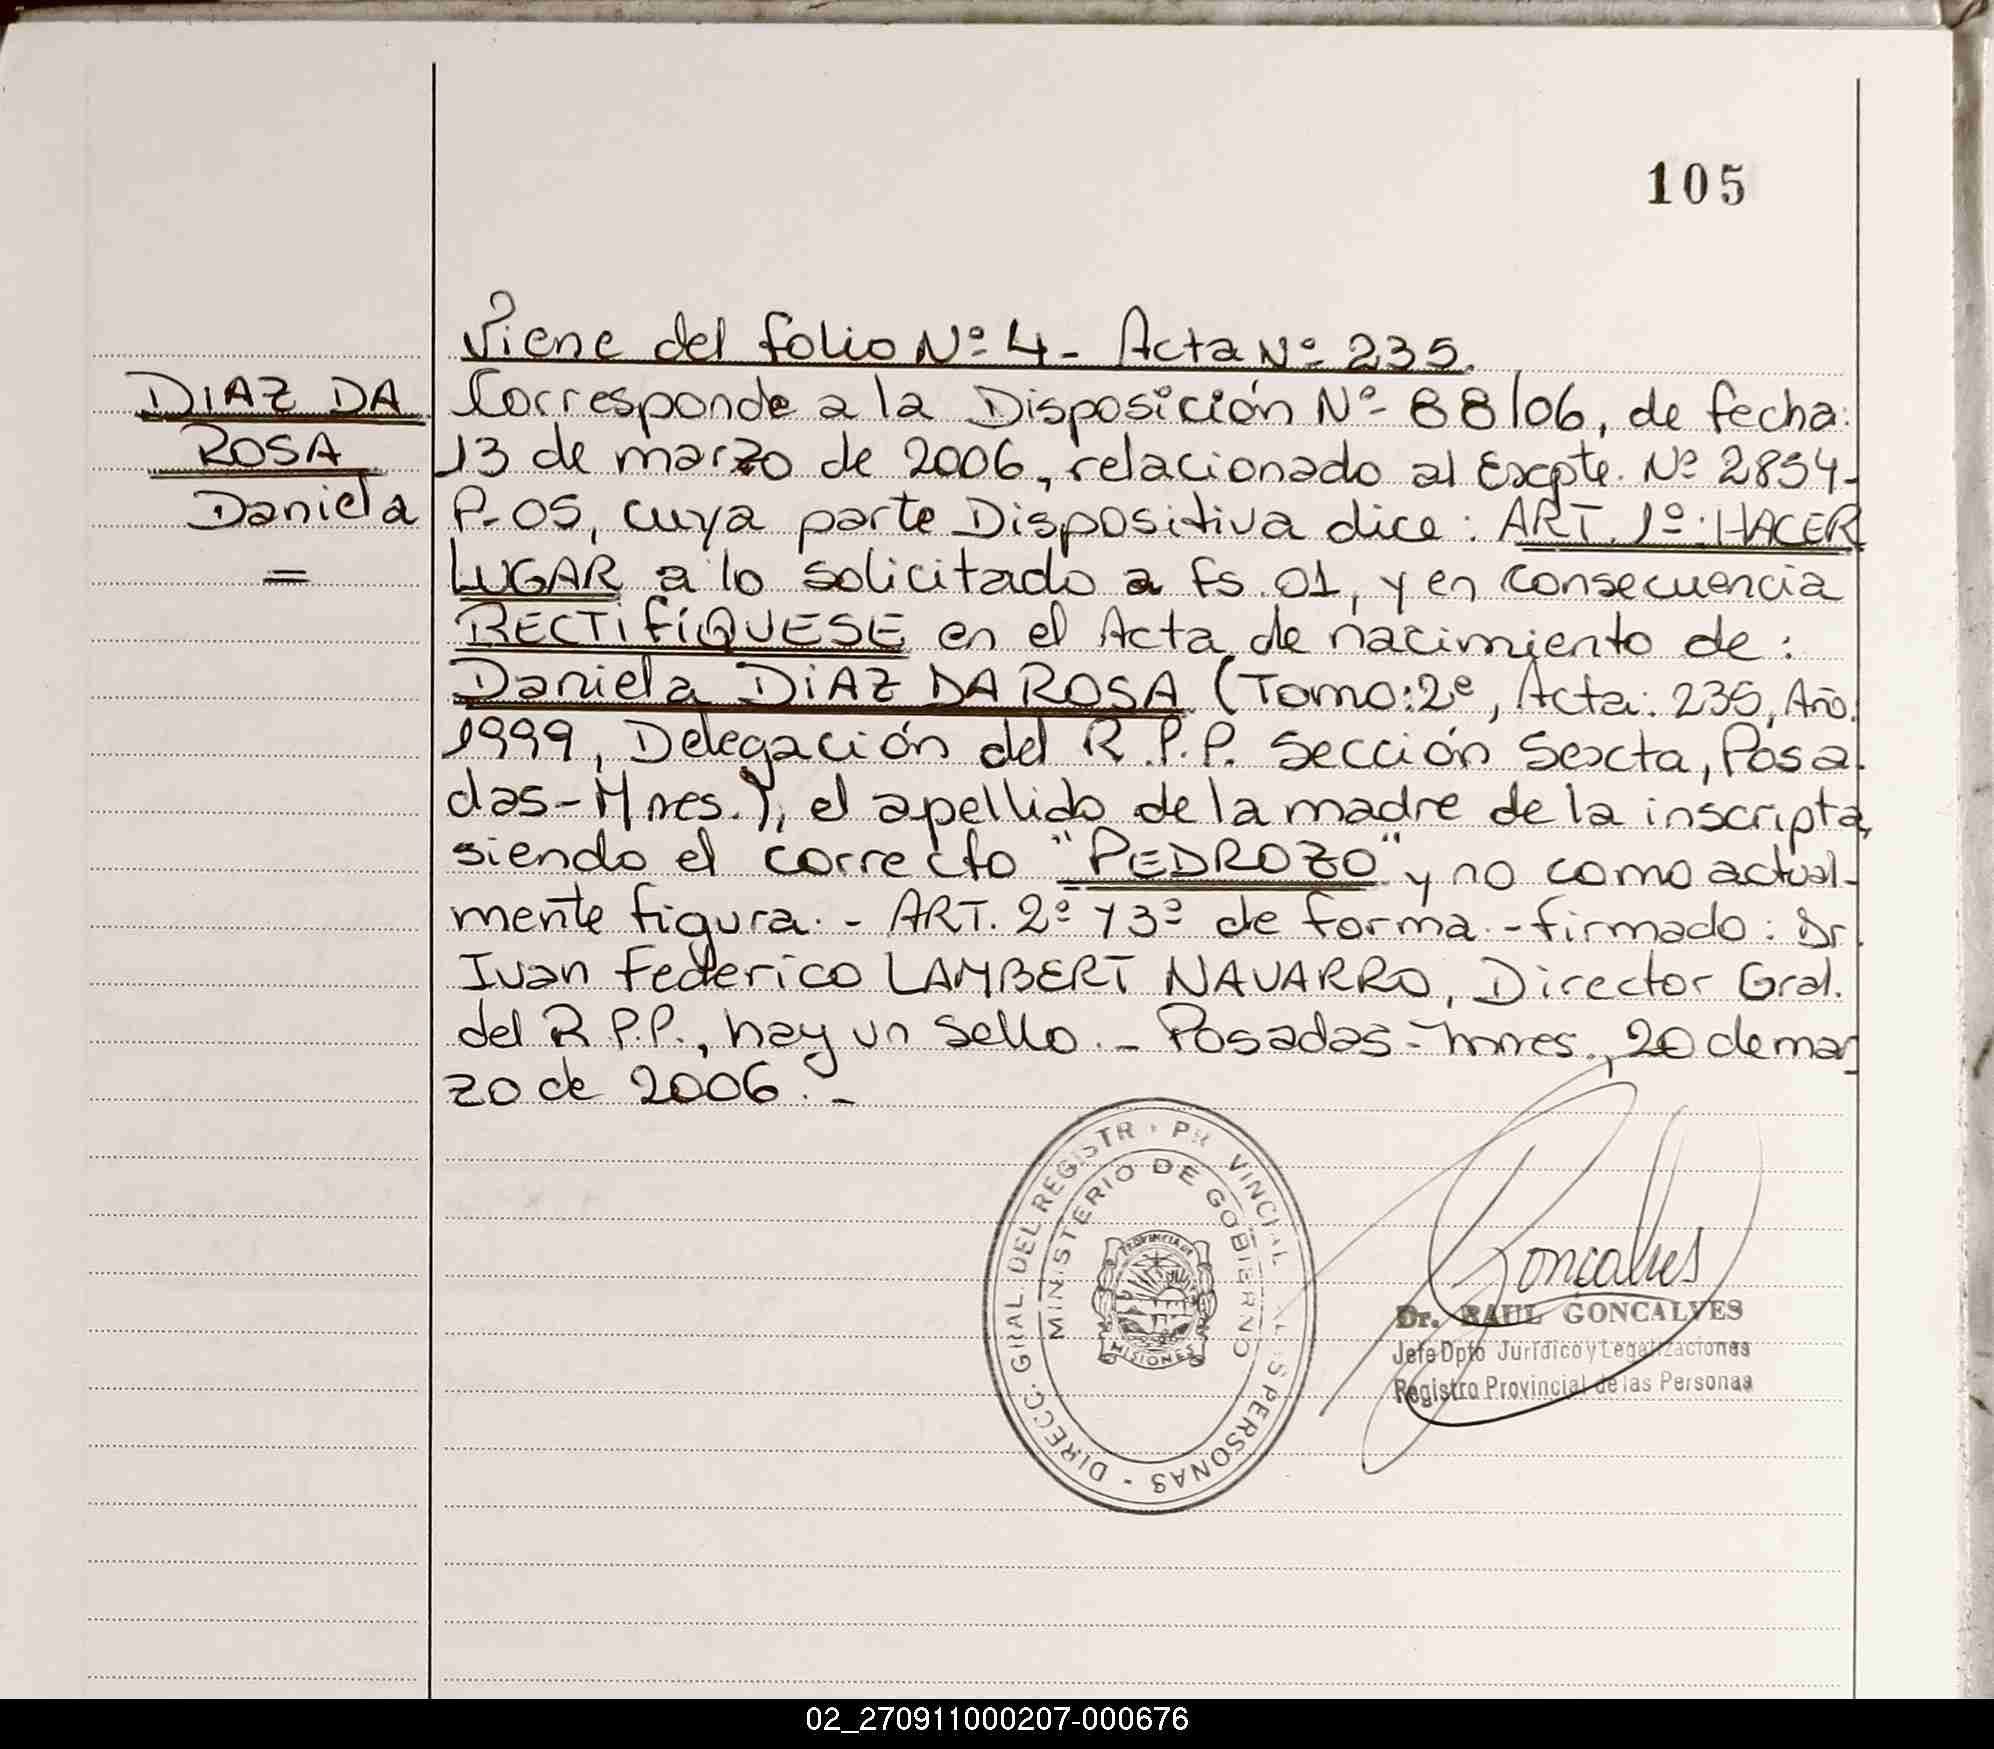 105
Viene del folio Nº 4 - Acta Nº 235.
DIAZ DA
ROSA
Daniela
=
Corresponde a la Disposición Nº 88/06, de fecha:
13 de marzo de 2006, relacionado al Expte. Nº 2854-
P-05, cuya parte Dispositiva dice: ART. 1º: HACER
LUGAR a lo solicitado a Fs. 01, y en consecuencia
RECTIFÍQUESE en el Acta de nacimiento de:
Daniela DIAZ DA ROSA (Tomo: 2º, Acta: 235, Año:
1999, Delegación del R.P.P. Sección Sexta, Posa
das-Mnes.), el apellido de la madre de la inscripta,
siendo el correcto "PEDROZO" y no como actual-
mente figura.- ART. 2º y 3º de forma.- firmado: Dr.
Ivan Federico LAMBERT NAVARRO, Director Gral.
del R.P.P., hay un sello.- Posadas-Mnes., 20 de mar
zo de 2006.-
DIRECC. GRAL. DEL REGISTR PR VINCIAL L S PERSONAS -
MINISTERIO DE GOBIERNO
PROVINCIA DE
MISIONES
Goncalves
Dr. RAUL GONCALVES
Jefe Dpto Jurídico y Legalizaciones
Registro Provincial de las Personas
02_270911000207-000676